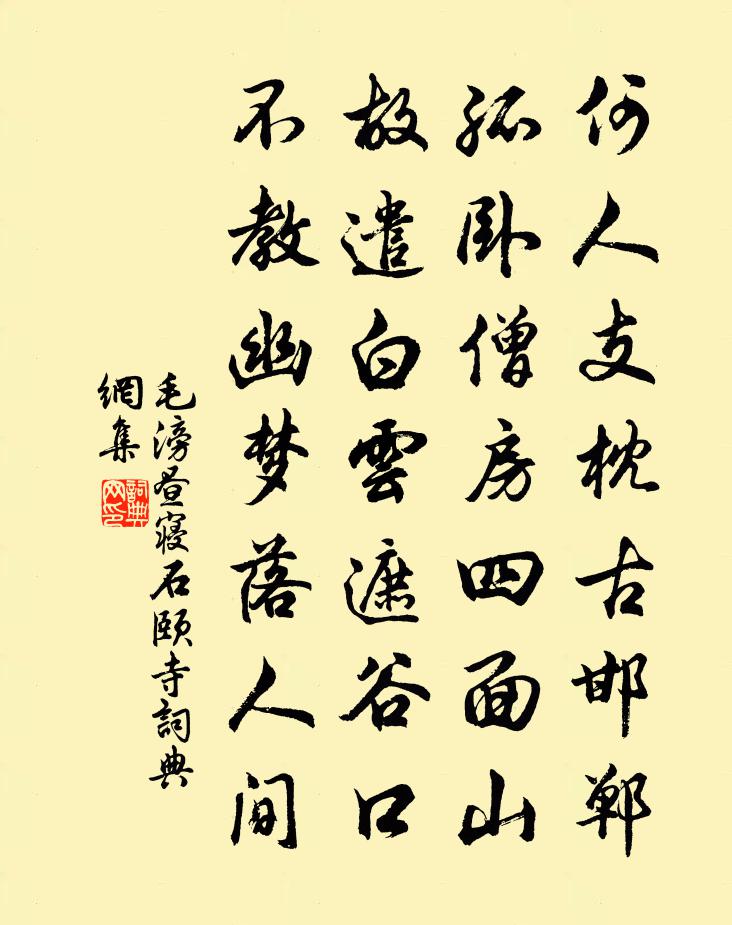 何人支枕古邯鄲
孤卧僧房四面山
故遣白雲遮谷口
不教幽梦落人间
毛滂昼寝石頤寺詞典
網集
詞典网印